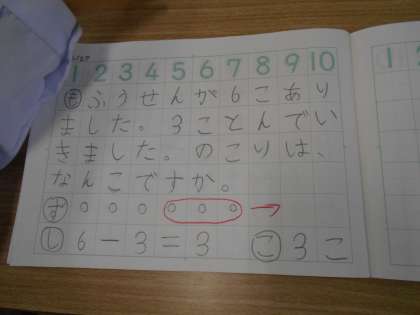 1 2 3 4 5 6 7 8 9 10
も ふうせんが6こあり
ました。3ことんでい
きました。のこりは、
なんこですか。
ず ○ ○ ○ ○ ○ ○ →
し 6-3=3 こ 3こ
1